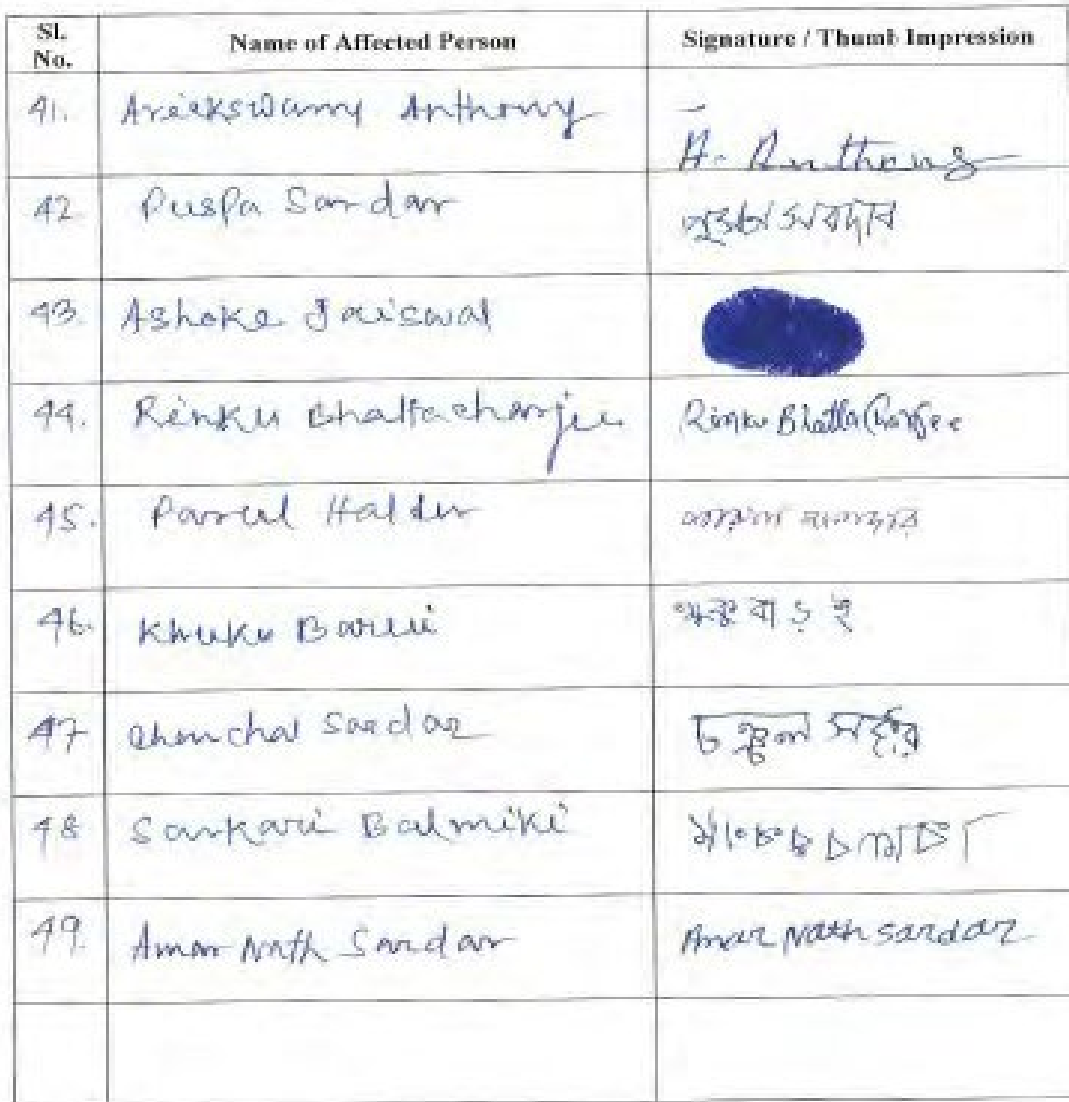 Sl. No. Name of Affected Person Signature / Thumb Impression
41. Areekswamy Anthony A. Anthony
42. Puspa Sardar
43. Ashoke Jaiswal
44. Rinku Bhattacharjee Rinku Bhattacharjee
45. Parul Halder
46. Khuku Barui
47 Chanchal Sardar চঞ্চল সর্দার
48 Sankari Balmiki
49. Amar Nath Sardar Amar Nath Sardar